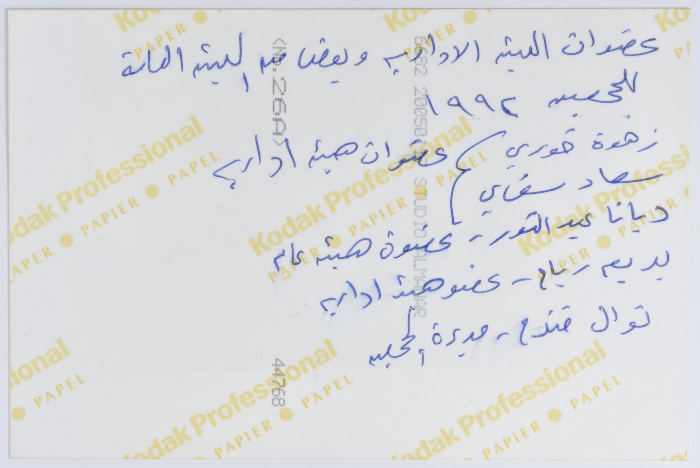 عضوات الهيئة الادارية وبعضا من الهيئة العامة
للجمعية ١٩٩٢
زهوة خوري
سعاد سفاي
عضوات هيئة ادارية
ديانا عبد النور - عضوة هيئة عامه
بديعه رباح - عضو هيئة ادارية
نوال - مديرة الجمعية
Kodak Professional
PAPIER PAPEL PAPER
<No. 26A>
STUDIO ALMANAR
44768